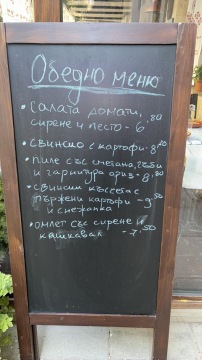 Обедно меню
• Салата домати,
сирене и песто - 6,80
• Свинско с картофи - 8,20
• пиле със сметана, гъби
и гарнитура ориз - 8,80
• свински късчета с
пържени картофи - 9,50
и снежанка
• омлет със сирене и
кашкавал - 7,50